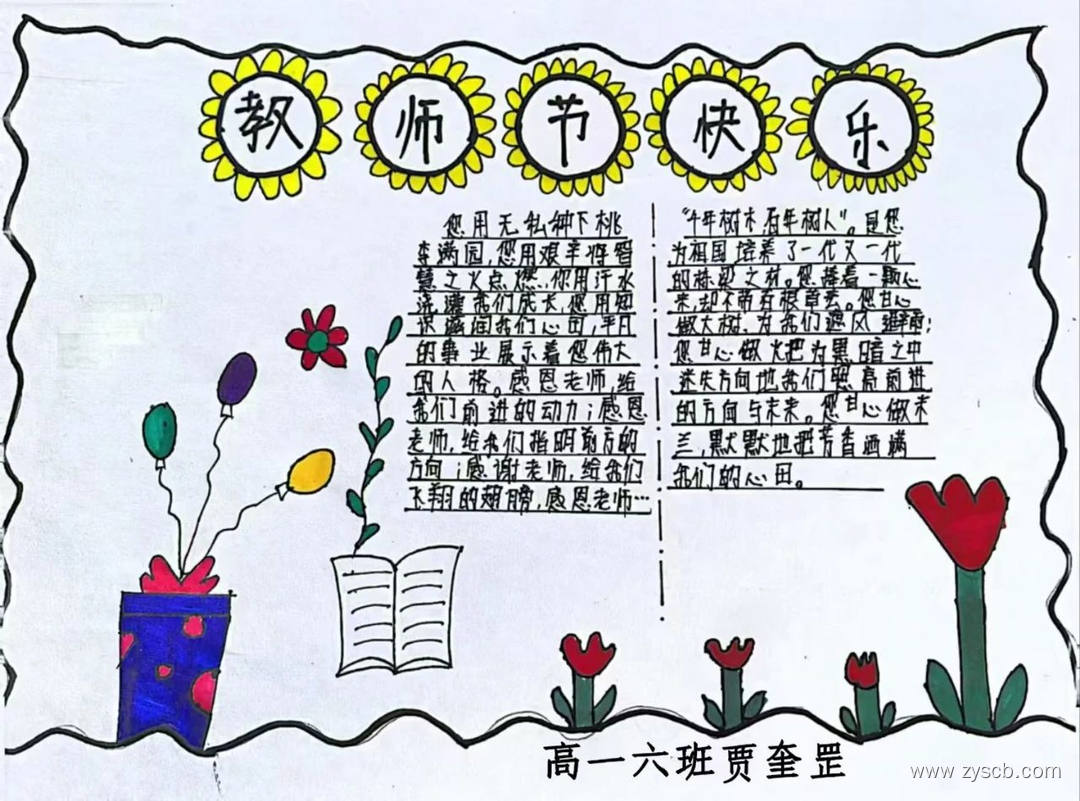 教师节快乐
您用无私种下桃
李满园,您用艰辛将智
慧之火点燃,你用汗水
浇灌我们成长,您用知
识滋润我们心田,平凡
的事业展示着您伟大
的人格。感恩老师,给
我们前进的动力;感恩
老师,给我们指明前方的
方向;感谢老师,给我们
飞翔的翅膀,感恩老师…
"十年树木百年树人"。是您
为祖国培养了一代又一代
的栋梁之材。您捧着一颗心
来,却不带有根草去。您甘心
做大树,为我们遮风避雨;
您甘心做火把为黑暗之中
迷失方向地我们照亮前进
的方向与未来。您甘心做米
兰,默默地把芳香洒满
我们的心田。
高一六班贾奎罡
www.zyscb.com